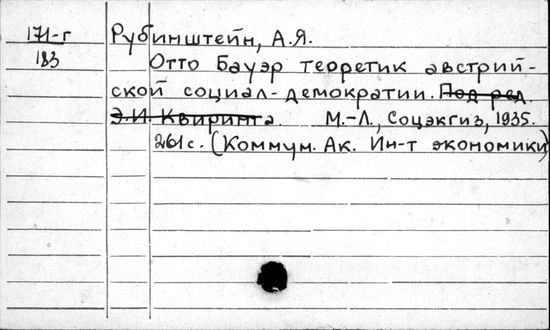 171-г
183
Рубинштейн, А.Я.
Отто Бауэр терретик австрий-
ской социал-демократии. Под ред.
Э.И. Квиринга. М.-Л., Соцэкгиз, 1935.
261с. (Коммун. Ак. Ин-т экономики)